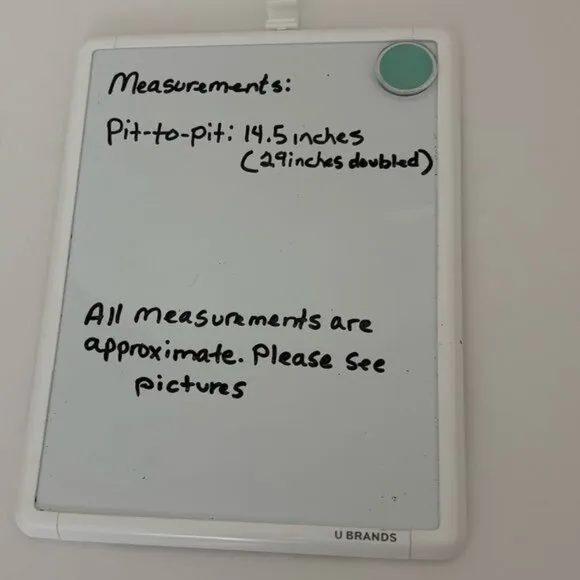 Measurements:
Pit-to-pit: 14.5 inches
(29 inches doubled)
All measurements are
approximate. Please see
pictures
U BRANDS